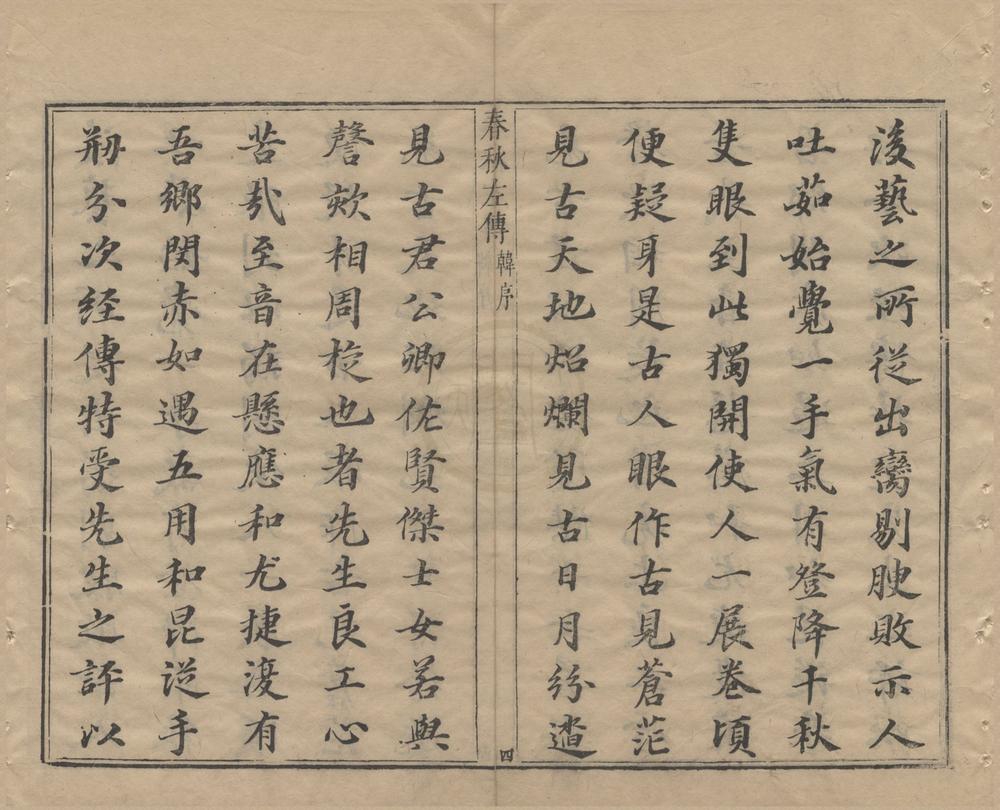 後藝之所從出臠剔腴敗示人
吐茹始覺一手氣有登降千秋
隻眼到此獨開使人一展卷頃
便疑身是古人眼作古見蒼茫
見古天地炤爛見古日月紛遝
春秋左傳 韓序 四
見古君公卿佐賢傑士女若與
謦欬相周旋也者先生良工心
苦哉至音在懸應和尤捷復有
吾鄉閔赤如遇五用和昆從手
剏分次經傳特受先生之評以